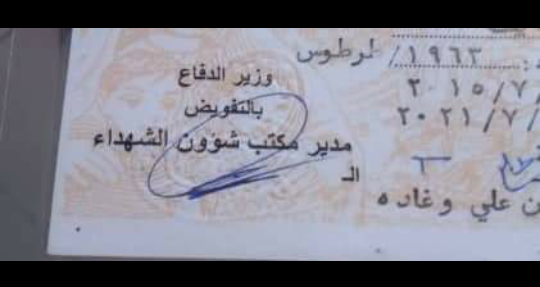 ١٩٦٣/ طرطوس
٢٠١٥/٧/
٢٠٢١/٧/
ن علي وغاده
وزير الدفاع
بالتفويض
مدير مكتب شؤون الشهداء
الـ